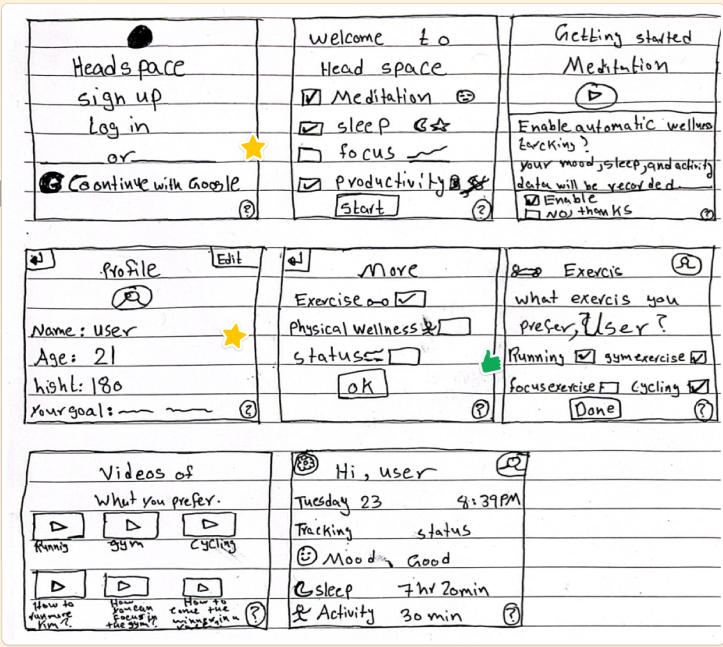 Headspace
sign up
Log in
or
G Coontinue with Google
?
welcome to
Head space
Meditation
sleep
focus
productivity
Start
?
Getting started
Meditution
Enable automatic wellness
tarcking?
your mood, sleep, and activity
data will be recorded.
Enable
No, thanks
?
Profile
Edit
Name: user
Age: 21
hight: 180
Your goal:
?
More
Exercise
Physical wellness
status
ok
?
Exercis
what exercis you
prefer, User?
Running gym exercise
focus exercise Cycling
Done
?
Videos of
What you prefer.
Runnig gym Cycling
How to How How to
run more you can come the
Km? Focus in winner in a
the gym?
?
Hi, user
Tuesday 23 8:39PM
Tracking status
Mood Good
sleep 7hr 20min
Activity 30 min
?